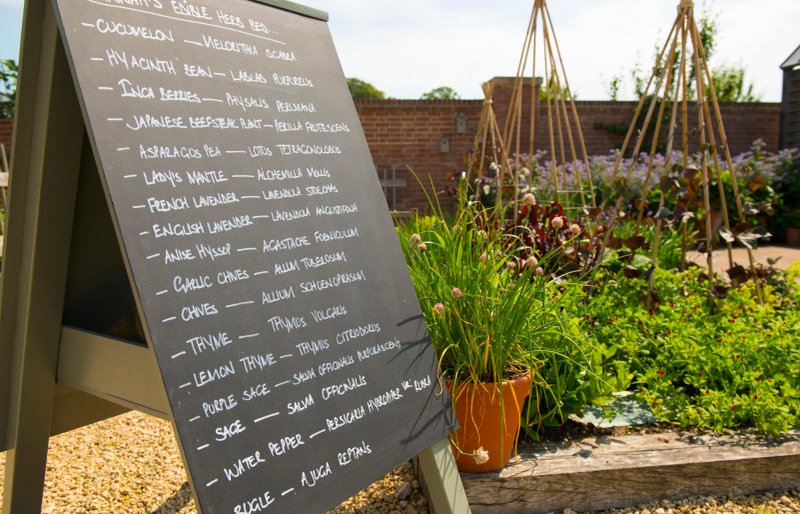 EDIBLE HERB BED...
– CUCUMELON – MELORITHIA SCABRA
– HYACINTH BEAN – LABLAB PURPUREUS
– INCA BERRIES – PHYSALIS PERUVIANA
– JAPANESE BEEFSTEAK PLANT – PERILLA FRUTESCENS
– ASPARAGUS PEA – LOTUS TETRAGONOLOBUS
– LADY'S MANTLE – ALCHEMILLA MOLLIS
– FRENCH LAVENDER – LAVENDULA STOECHAS
– ENGLISH LAVENDER – LAVENDULA ANGUSTIFOLIA
– ANISE HYSSOP – AGASTACHE FOENICULUM
– GARLIC CHIVES – ALLIUM TUBEROSUM
– CHIVES – ALLIUM SCHOENOPRASUM
– THYME – THYMUS VULGARIS
– LEMON THYME – THYMUS CITRIODORUS
– PURPLE SAGE – SALVIA OFFICINALIS PURPURASCENS
– SAGE – SALVIA OFFICINALIS
– WATER PEPPER – PERSICARIA HYDROPIPER VAR RUBRA
BUGLE – AJUGA REPTANS